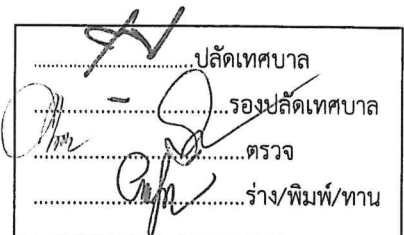 ปลัดเทศบาล
รองปลัดเทศบาล
ตรวจ
ร่าง/พิมพ์/ทาน